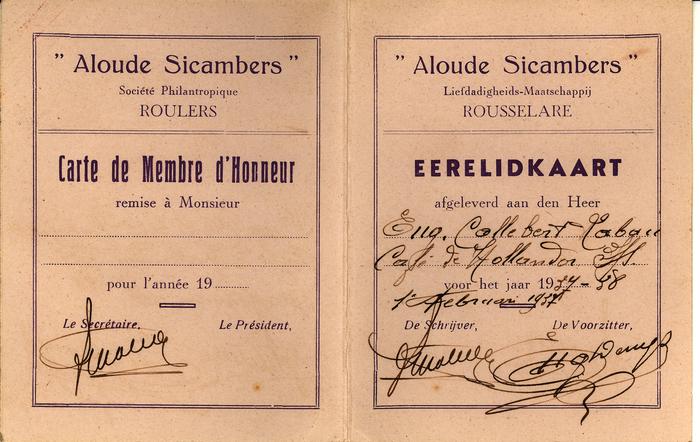 " Aloude Sicambers "
Société Philantropique
ROULERS
Carte de Membre d'Honneur
remise à Monsieur
pour l'année 19
Le Secrétaire,
Le Président,
" Aloude Sicambers "
Liefdadigheids-Maatschappij
ROUSSELARE
EERELIDKAART
afgeleverd aan den Heer
Eug. Callebert
Café de Hollander
voor het jaar 1937 - 38
1e Februari 1937
De Schrijver,
De Voorzitter,